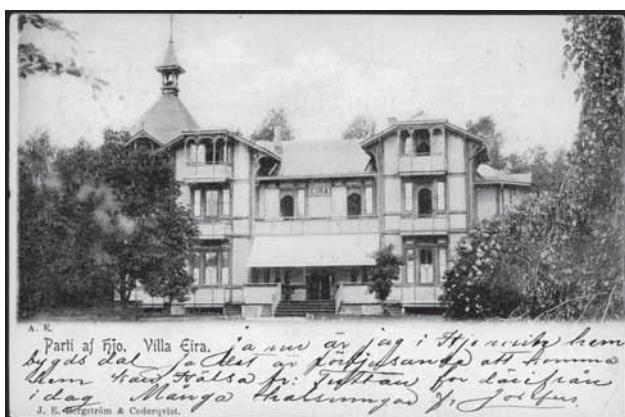 EIRA
A. E.
Parti af Hjo. Villa Eira. ja nu är jag i Hjo min hem
bygds dal ja det är förtjusande att komma
hem kan Hälsa fr: Tuttan för därifrån
idag Många hälsningar fr
J. E. Bergström & Coderqvist.